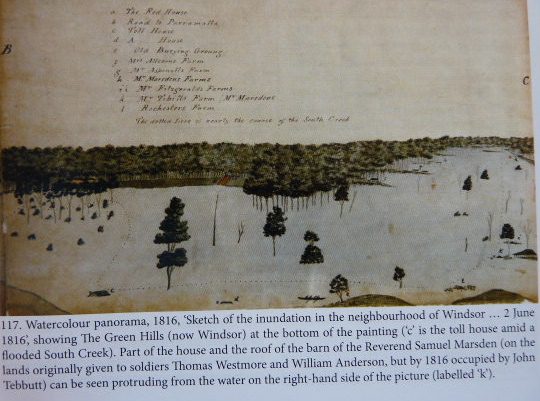 a The Red House
b Road to Parramatta
c Toll House
d A House
e Old Burying Ground
f Mrs Allcorns Farm
g Mr Aspenalls Farm
h Mr Marsdens Farms
i i Mr Fitzgeralds Farms
k Mr Tebitts Farm Mr Marsdens
l Rochesters Farm
The dotted lines is nearly the course of the South Creek
B
C
117. Watercolour panorama, 1816, ‘Sketch of the inundation in the neighbourhood of Windsor … 2 June
1816’, showing The Green Hills (now Windsor) at the bottom of the painting (‘c’ is the toll house amid a
flooded South Creek). Part of the house and the roof of the barn of the Reverend Samuel Marsden (on the
lands originally given to soldiers Thomas Westmore and William Anderson, but by 1816 occupied by John
Tebbutt) can be seen protruding from the water on the right-hand side of the picture (labelled ‘k’).